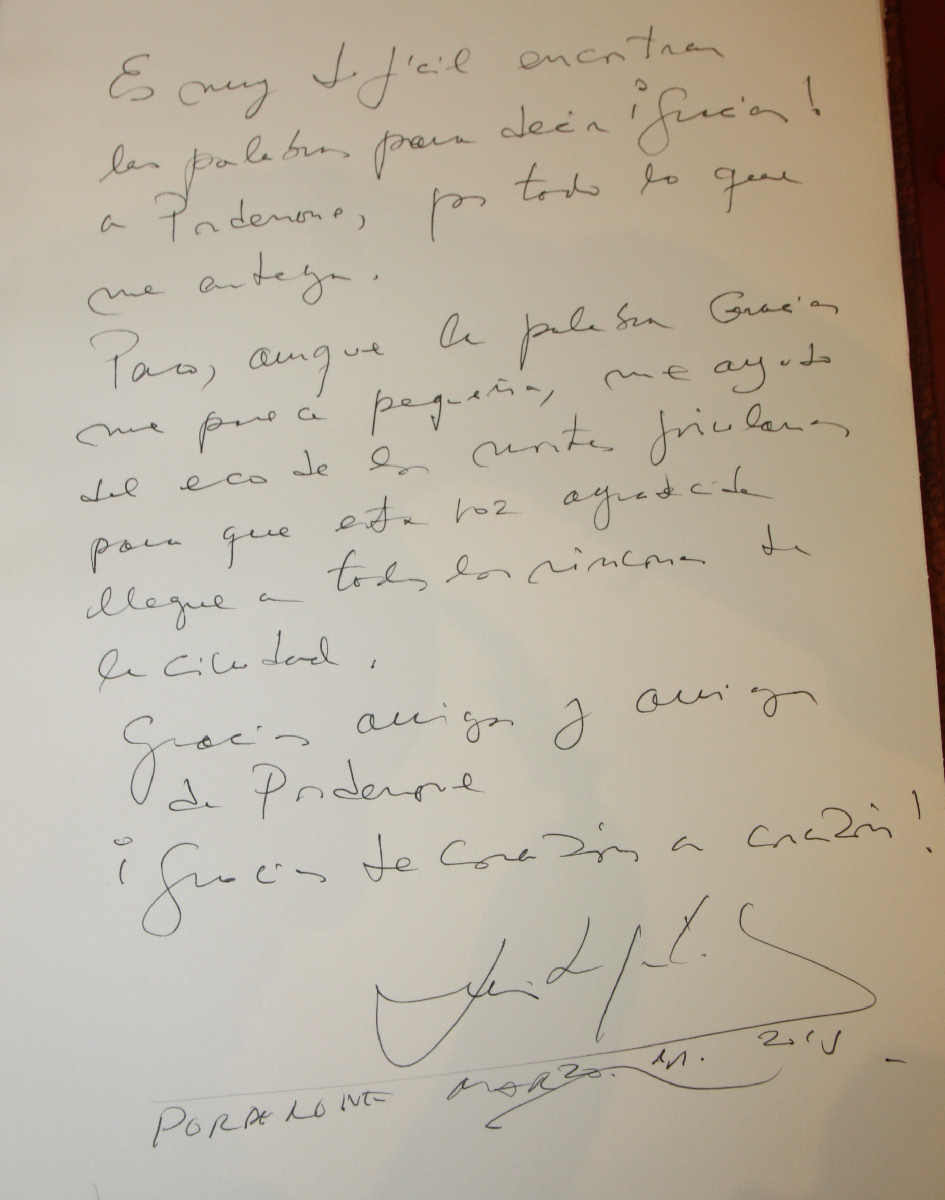 Es muy difícil encontrar
las palabras para decir ¡Gracias!
a Pordenone, por todo lo que
me entega.
Pero, aunque la palabra Gracias
me parece pequeña, me ayudo
del eco de los montes friulanos
para que esta voz agradecida
llegue a todos los rincones de
la ciudad.
Gracias amigos y amigas
de Pordenone
¡Gracias de corazón a corazón!
PORDENONE MARZO.